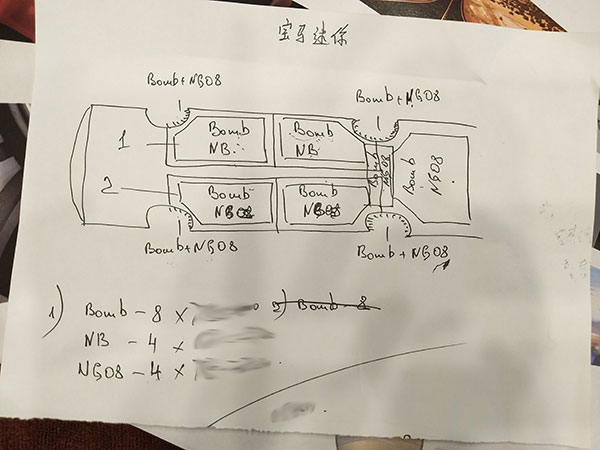 宝马迷你
Bomb+NG08 Bomb+NG08
1 Bomb NB Bomb NB
Bomb NG08 Bomb NG08
2 Bomb NG08 Bomb NG08
Bomb+NG08 Bomb+NG08
1) Bomb - 8 × 2) Bomb - 8
NB - 4 ×
NG08 - 4 ×